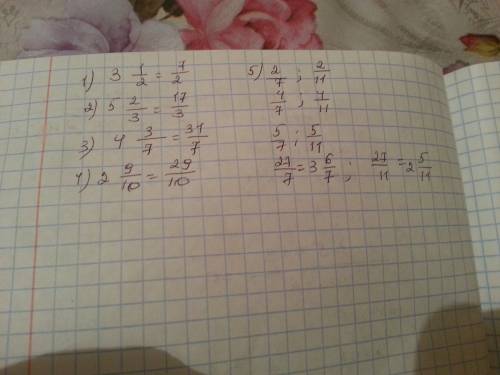 1) 3 1/2 = 7/2
2) 5 2/3 = 17/3
3) 4 3/7 = 31/7
4) 2 9/10 = 29/10
5) 2/7 ; 2/11
4/7 ; 7/11
5/7 ; 5/11
27/7 = 3 6/7 ; 27/11 = 2 5/11